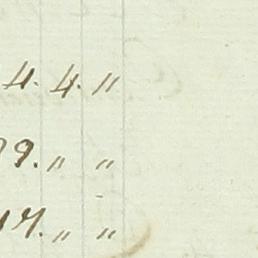 4. 4. "
9. " "
14. " "